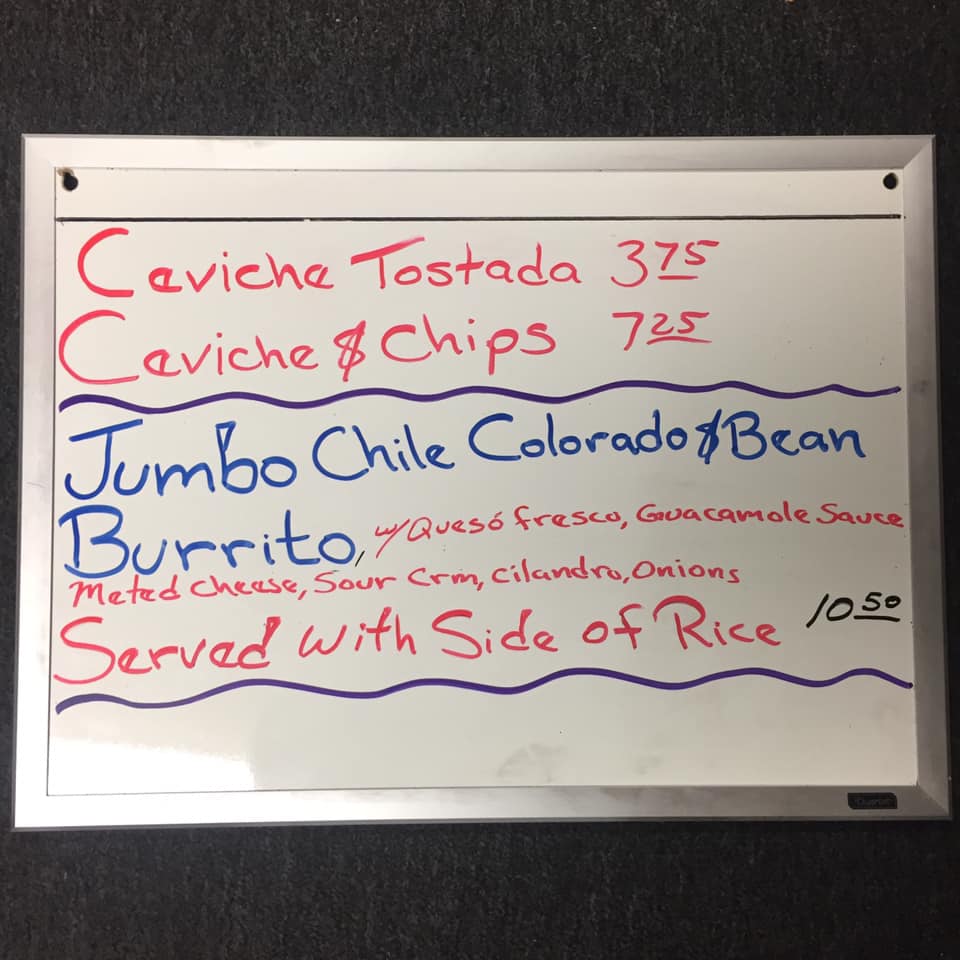 Ceviche Tostada 3 75
Ceviche & Chips 7 25
Jumbo Chile Colorado & Bean
Burrito, w/ Quesó fresco, Guacamole Sauce
Meted Cheese, Sour Crm, Cilandro, Onions
Served with Side of Rice 10 50
Quartet